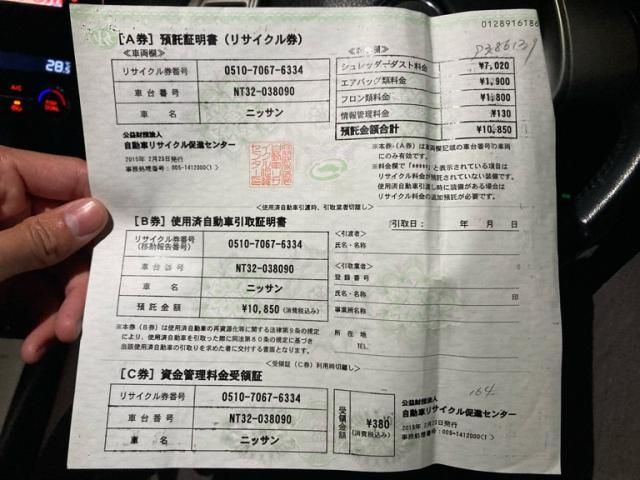 0128916186
［A券］預託証明書（リサイクル券）
≪車両欄≫
リサイクル券番号 0510-7067-6334
車台番号 NT32-038090
車名 ニッサン
シュレッダーダスト料金 ¥7,020
エアバッグ類料金 ¥1,900
フロン類料金 ¥1,800
情報管理料金 ¥130
預託金額合計 ¥10,850
公益財団法人
自動車リサイクル促進センター
2015年 2月23日発行
事務処理番号：005-1412000(1)
＊本券（A券）は車両欄記載の車台番号の車両
にのみ有効です。
＊料金欄で「*****」と表示されている項目は
リサイクル料金が預託されていない装備です。
使用済自動車引渡し時に装備がある場合は
リサイクル料金の追加預託が必要です。
＜使用済自動車引渡時、引取業者切離し＞
［B券］使用済自動車引取証明書
引取日： 年 月 日
リサイクル券番号
(移動報告番号) 0510-7067-6334
車台番号 NT32-038090
車名 ニッサン
預託金額 ¥10,850(消費税込み)
＜引渡者＞
氏名・名称
＜引取業者＞
登録番号
氏名・名称 印
事業所名
所在地
TEL.
＊本券（B券）は使用済自動車の再資源化等に関する法律第9条の規定
により、使用済自動車を引取った際に同法第80条の規定に基づき
当該使用済自動車の引取りを求めた者に交付する書面となります。
＜受領証（C券）利用時切離し＞
［C券］資金管理料金受領証
リサイクル券番号 0510-7067-6334
車台番号 NT32-038090
車名 ニッサン
受領金額 ¥380
(消費税込み)
164
公益財団法人
自動車リサイクル促進センター
2015年 2月23日発行
事務処理番号：005-1412000(1)
28.5